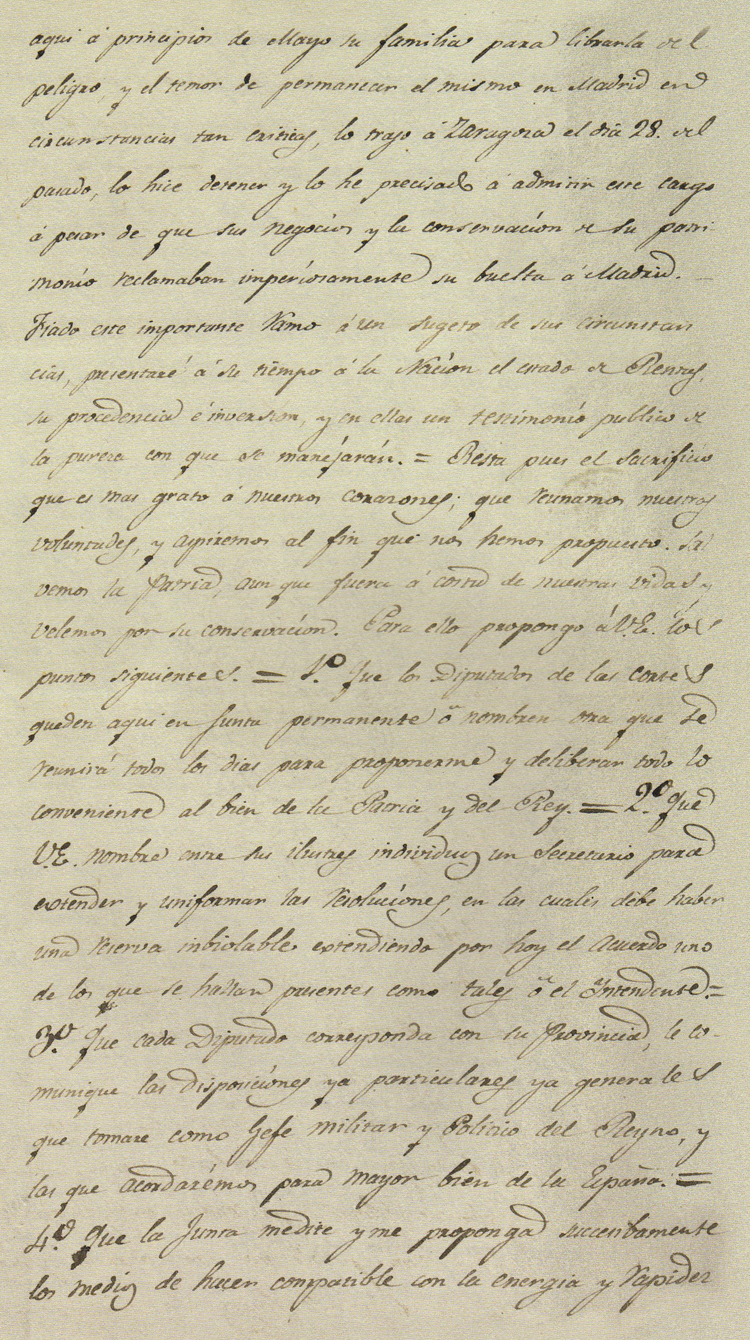 aqui á principios de Mayo su familia para librarla del
peligro, y el temor de permanecer el mismo en Madrid en
circunstancias tan criticas, lo trajo á Zaragoza el dia 28. del
pasado, lo hice detener y lo he precisado á admitir este cargo
á pesar de que sus negocios y la conservacion de su patri
monio reclamaban imperiosamente su buelta á Madrid.
Fiado este importante Ramo á un sugeto de sus circunstan
cias, presentaré á su tiempo á la Nacion el estado de Rentas,
su procedencia é inversion, y en ellas un testimonio publico de
la pureza con que se manejarán. = Resta pues el sacrificio
que es mas grato á nuestros corazones; que reunamos nuestras
voluntades, y aspiremos al fin que nos hemos propuesto. Sal
vemos la Patria, aun que fuera á costa de nuestras vidas y
velemos por su conservacion. Para ello propongo á V.E. los
puntos siguientes. = 1.º Que los Diputados de las Cortes
queden aqui en Junta permanente ó nombren otra que se
reunirá todos los dias para proponerme y deliberar todo lo
conveniente al bien de la Patria y del Rey. = 2.º Que
V.E. nombre entre sus ilustres individuos un Secretario para
extender y uniformar las resoluciones, en las cuales debe haber
una reserva inbiolable, extendiendo por hoy el Acuerdo uno
de los que se hallan presentes como tales ó el Intendente. =
3.º Que cada Diputado corresponda con su Provincia, le co-
munique las disposiciones ya particulares ya generales
que tomare como Gefe militar y Politico del Reyno, y
las que acordarémos para mayor bien de la España. =
4.º Que la Junta medite y me proponga succesibamente
los medios de hacer compatible con la energia y rapidez